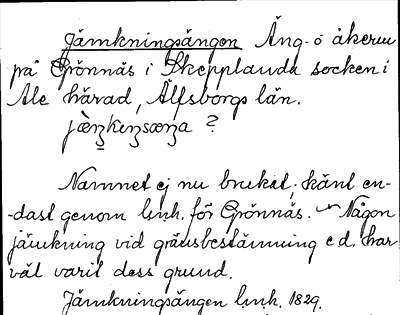 Jämkningsängen Äng o åkerm
på Grönnäs i Skepplanda socken i
Ale härad, Älfsborgs län.
?
Namnet ej nu brukat; känt en-
-dast genom lmh. för Grönnäs. Någon
jämkning vid gränsbestämning e d. har
väl varit dess grund.
Jämkningsängen lmh. 1829.